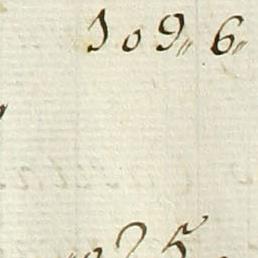 109„ 6„
25